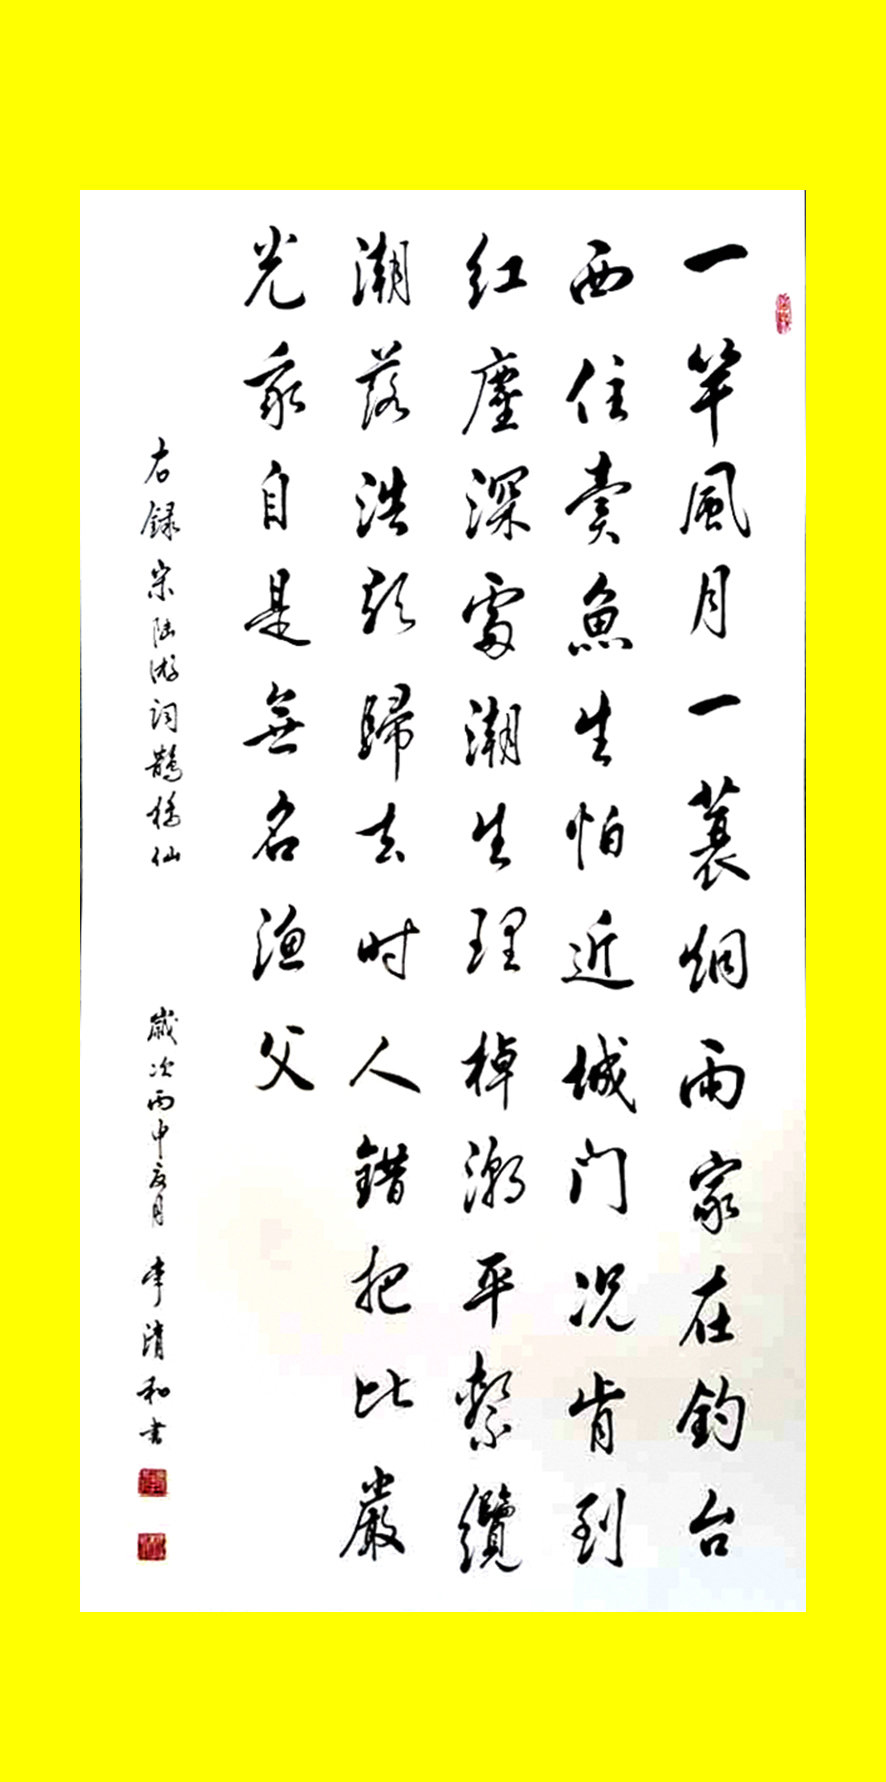 一竿風月一蓑烟雨家在釣台
西住賣魚生怕近城门况肯到
红塵深處潮生理棹潮平繫纜
潮落浩歌歸去时人錯把比嚴
光我自是無名渔父
右録宋陆游词鵲橋仙 歲次丙申夏月 李清和书